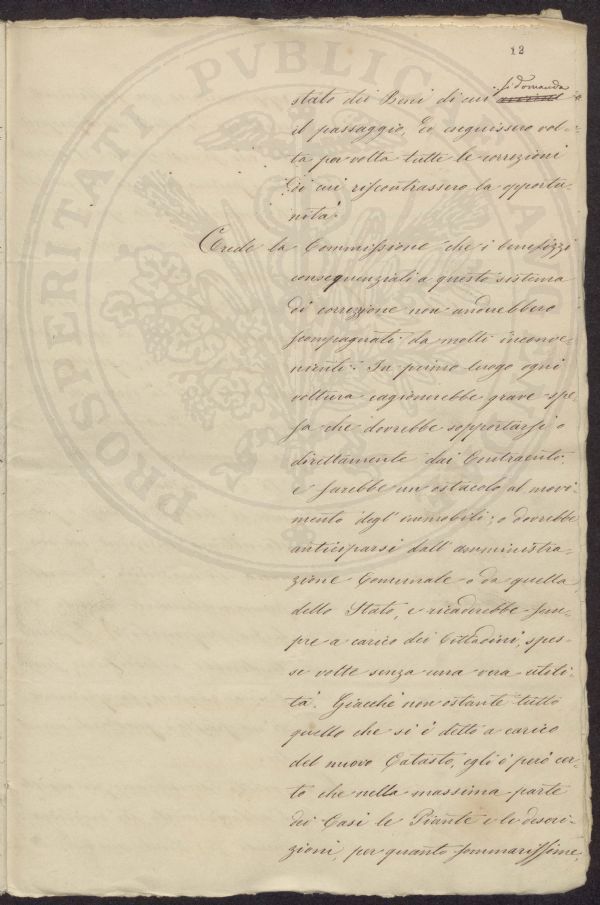 12
si domanda
stato dei Beni di cui
il passaggio, ed eseguissero vol-
ta per volta tutte le correzioni
di cui riscontrassero la opportu-
nità.
Crede la Commissione che i benefizzi
consequenziali a questo sistema
di correzione non anderebbero
scompagnati da molti inconve-
nienti. In primo luogo ogni
voltura cagionerebbe grave spe-
sa che dovrebbe sopportarsi o
direttamente dai Contraenti,
e sarebbe un ostacolo al movi-
mento degl'immobili; o dovrebbe
anticiparsi dall'amministra-
zione Comunale o da quella
dello Stato, e ricaderebbe sem-
pre a carico dei Cittadini, spes-
se volte senza una vera utili-
tà. Giacchè non ostante tutto
quello che si è detto a carico
del nuovo Catasto, egli è però cer-
to che nella massima parte
dei Casi le Piante e le descri-
zioni, per quanto sommarissime,
PROSPERITATI PVBLICAE